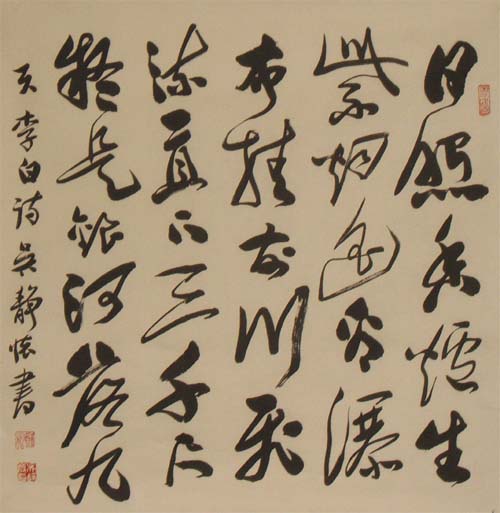 日照香爐生
紫烟遥看瀑
布挂前川飛
流直下三千尺
疑是銀河落九
天 李白詩 吴静懷書